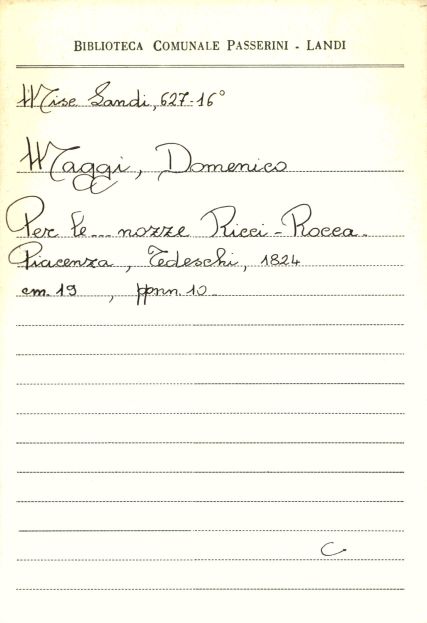 BIBLIOTECA COMUNALE PASSERINI - LANDI
Misc Landi, 627-16°
Maggi, Domenico
Per le... nozze Ricci-Rocca.
Piacenza, Tedeschi, 1824
cm. 19, ppnn. 10.
C